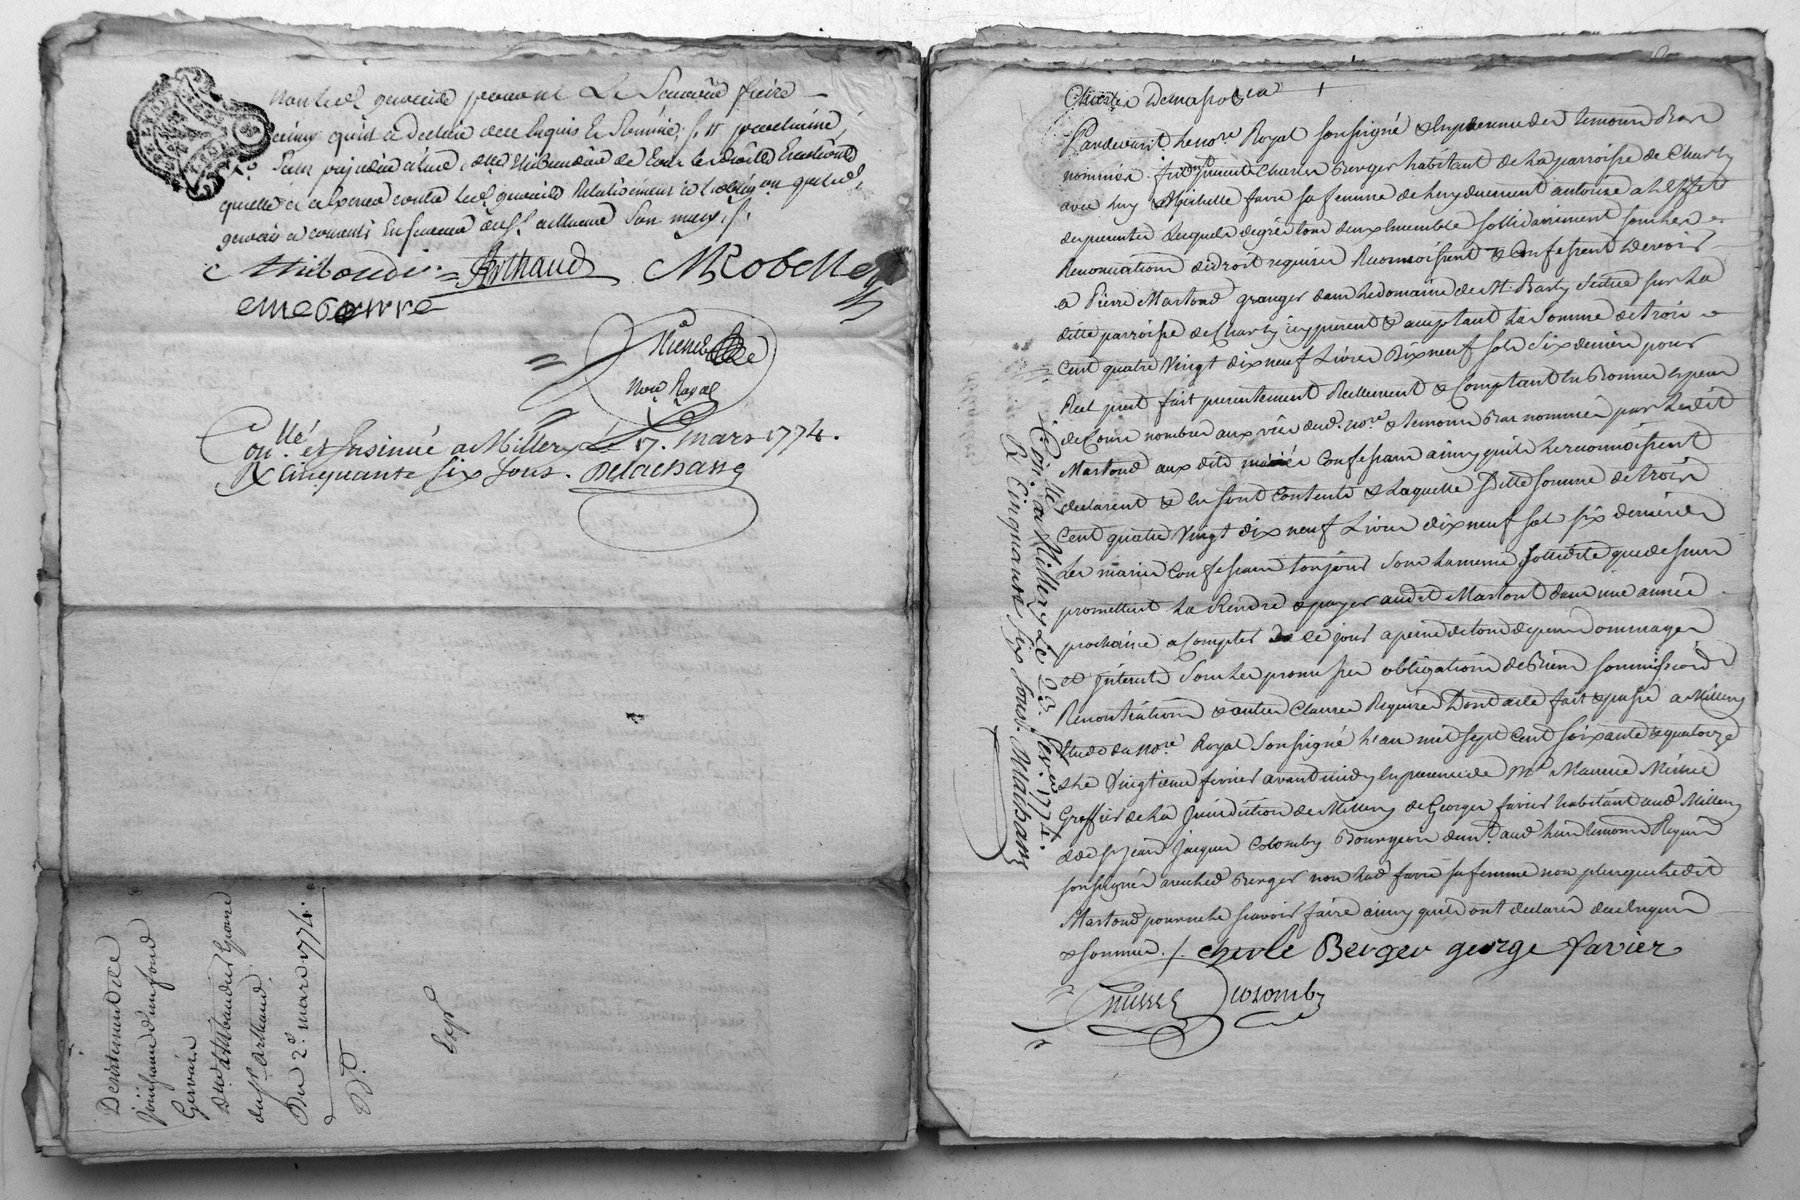 non led. gervais
ainsy qu'il a déclaré de ce enquis & sommé
sans préjudice à lad. dlle Thibaudier de tous les droits & actions
qu'elle a à exercer contre led. gervais Relativement
Arthaud son
Thibaudier = Arthaud MRobelle
eme favre
nore Royal
Con.llé et Insinué a Millery le 17. mars 1774.
R cinquante six sous. Delachassag
Desistement de
joüissance d'un fond
Gervais
Dlle Thibaudier femme
du sr. arthaud
Du 2e mars 1774.
Expé
Pardevant le nore Royal soussigné & en presence des temoins Bas
nommés furent presents Charles Berger habitant de la parroisse de Charly
avec luy & Michelle favre sa femme de luy duement autorisé a l'effet
des presentes lesquels de gré tous deux ensemble sollidairement sous les
Renonciations de droit requises Reconnoissent & Confessent devoir
a Pierre Martoud granger dans le domaine de Mr. Barly Scitué sur la
ditte parroisse de Charly icy present & acceptant la somme de trois
cent quatre Vingt dix neuf Livres Dix neuf sols Six deniers pour
Reel prest fait presentement Reellement & Comptant en Bonnes especes
de Cours nombrés aux vües dud. nore & temoins Bas nommés par ledit
Martoud aux dits mariés Confessants ainsy qu'ils le reconnoissent
declarent & en sont Contents & laquelle Ditte somme de trois
Cent quatre Vingt dix neuf Livres dix neuf sol six deniers
les mariés Confessants toujours sous la meme sollidité que dessus
promettent la Rendre & payer audit Martoud dans une année
prochaine a Compter de ce jour a peine de tous depens dommages
et jnterets Sous les promesses obligations de Biens soumissions
Renontiations & autres Clauses Requises Dont acte fait & passé a Millery
Etude du nore Royal Soussigné l'an mil sept cent soixante & quatorze
& le Vingtieme fevrier avant midy en presence de Me Maurice Missel
Greffier de la Juridiction de Millery de George favier habitant aud. Millery
& de sr. Jean Jacques Colomby Bourgeois demt. aud. lieu temoins Requis
soussignés avec led. Berger non lad. favre sa femme non plus que ledit
Martoud pour ne le scavoir faire ainsy qu'ils ont declarés de ce enquis
& sommés ./. cherle Berger george favier
Missel Jcolomby
Con.llé a Millery Le 23. fevr. 1774.
R Cinquante six sous.